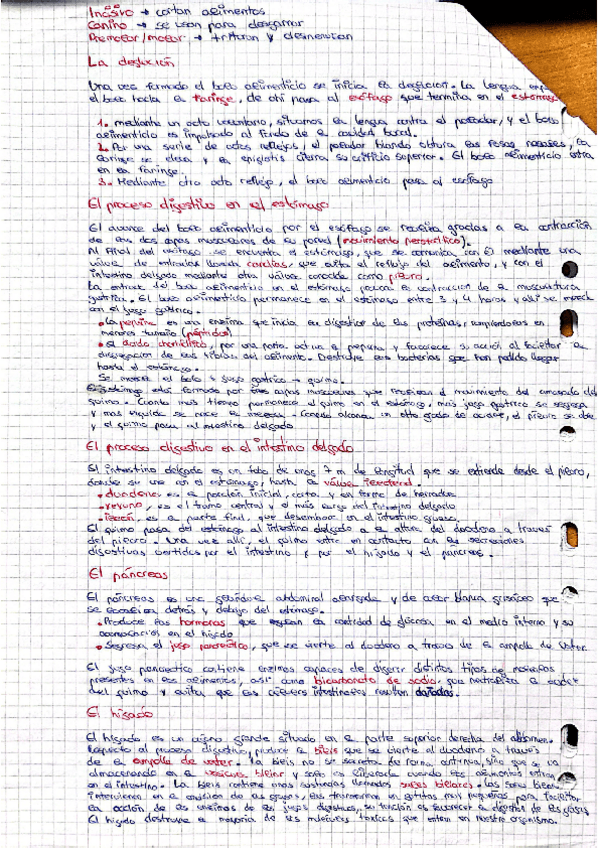 Incisivo → cortan alimentos
Canino → se usan para desgarrar
Premolar/molar → trituran y desmenuzan
La deglución
Una vez formado el bolo alimenticio se inicia la deglución. La lengua
el bolo hacia la faringe, de ahí pasa al esófago que termina en el estómago
1. mediante un acto voluntario, situamos la lengua contra el paladar, y el bolo
alimenticio es impulsado al fondo de la cavidad bucal.
2. Por una serie de actos reflejos, el paladar blando obtura las fosas nasales, la
laringe se eleva y la epiglotis cierra su orificio superior. El bolo alimenticio entra
en la faringe.
3. Mediante otro acto reflejo, el bolo alimenticio pasa al esófago
El proceso digestivo en el estómago
El avance del bolo alimenticio por el esófago se realiza gracias a la contracción
de las dos capas musculares de su pared (movimiento peristáltico).
Al final del esófago se encuentra el estómago, que se comunica con él mediante una
válvula de entrada llamada cardias, que evita el reflujo del alimento, y con el
intestino delgado mediante otra válvula conocida como píloro.
La entrada del bolo alimenticio en el estómago provoca la contracción de la musculatura
gástrica. El bolo alimenticio permanece en el estómago entre 3 y 4 horas y allí se mezcla
con el jugo gástrico.
• La pepsina es una enzima que inicia la digestión de las proteínas, rompiéndolas en
menores tamaño (péptidos)
• El ácido clorhídrico, por una parte, activa la pepsina y favorece su acción al facilitar la
disgregación de las fibras del alimento. Destruye las bacterias que han podido llegar
hasta el estómago.
Se mezcla el bolo + jugo gástrico → quimo.
Estómago está formado por tres capas musculares que realizan el movimiento de amasado del
quimo. Cuanto más tiempo permanece el quimo en el estómago, más jugo gástrico se segrega
y más líquida se hace la mezcla. Cuando alcanza un alto grado de acidez, el píloro se abre
y el quimo pasa al intestino delgado
El proceso digestivo en el intestino delgado
El intestino delgado es un tubo de unos 7 m de longitud que se extiende desde el píloro,
donde se une con el estómago, hasta la válvula ileocecal.
• duodeno: es la porción inicial, corta, y en forma de herradura
• yeyuno, es el tramo central y el más largo del intestino delgado
• íleon, es la parte final, que desemboca en el intestino grueso.
El quimo pasa del estómago al intestino delgado a la altura del duodeno a través
del píloro. Una vez allí, el quimo entra en contacto con las secreciones
digestivas vertidas por el intestino y por el hígado y el páncreas.
El páncreas
El páncreas es una glándula abdominal alargada y de color blanco grisáceo que
se localiza detrás y debajo del estómago.
• Produce las hormonas que regulan la cantidad de glucosa en el medio interno y su
acumulación en el hígado
• Segrega el jugo pancreático, que se vierte al duodeno a través de la ampolla de Vater.
El jugo pancreático contiene enzimas capaces de digerir distintos tipos de
presentes en los alimentos, así como bicarbonato de sodio, que neutraliza la acidez
del quimo y evita que las células intestinales resulten dañadas.
El hígado
El hígado es un órgano grande situado en la parte superior derecha del abdomen.
Respecto al proceso digestivo, produce la bilis que se vierte al duodeno a través
de la ampolla de vater. La bilis no se secreta de forma continua, sino que se va
almacenando en la vesícula biliar y solo es liberada cuando los alimentos entran
en el intestino. La bilis contiene unas sustancias llamadas sales biliares. Las sales biliares
intervienen en la emulsión de las grasas, las transforma en gotitas muy pequeñas para facilitar
la acción de las enzimas de los jugos digestivos, su función es favorecer la digestión de las grasas
El hígado destruye la mayoría de las moléculas tóxicas que entran en nuestro organismo.